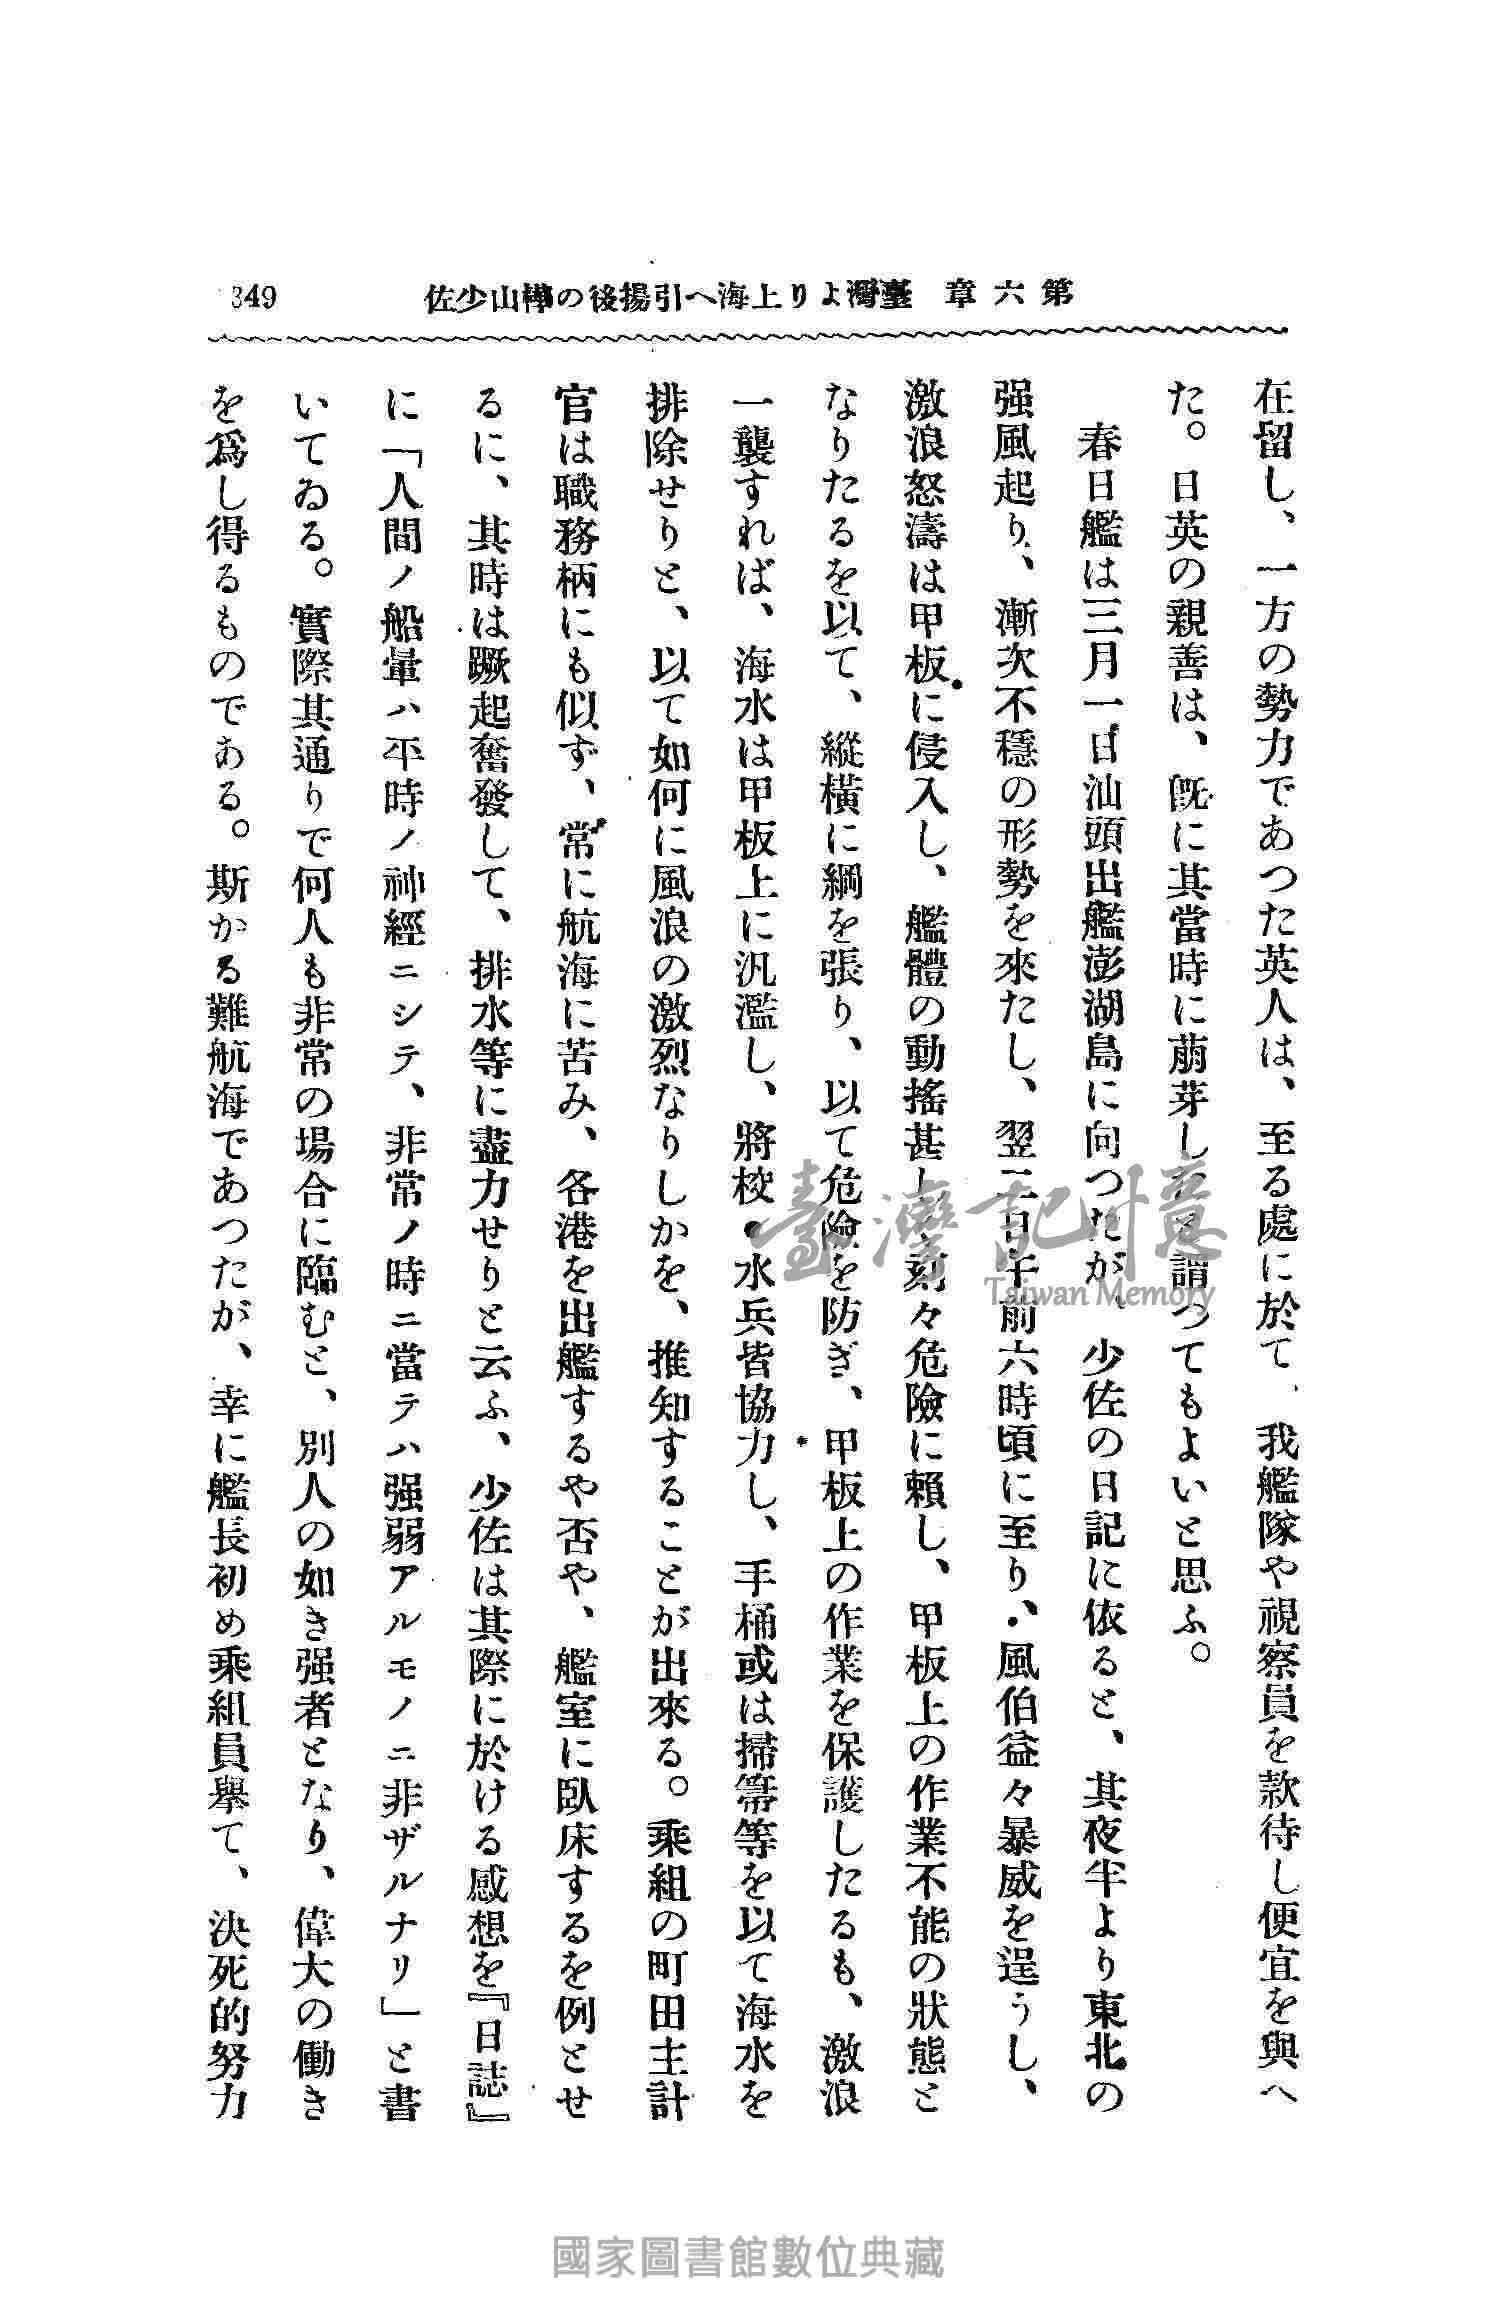 第六章 臺灣より上海へ引揚後の樺山少佐
349
在留し、一方の勢力であつた英人は、至る處に於て、我艦隊や視察員を款待し便宜を與へ
た。日英の親善は、既に其當時に萠芽したと謂つてもよいと思ふ。
春日艦は三月一日汕頭出艦澎湖島に向つたが、少佐の日記に依ると、其夜半より東北の
强風起り、漸次不穩の形勢を來たし、翌二日午前六時頃に至り、風伯益々暴威を逞うし、
激浪怒濤は甲板に侵入し、艦體の動搖甚しく刻々危險に頻し、甲板上の作業不能の狀態と
なりたるを以て、縱橫に綱を張り、以て危險を防ぎ、甲板上の作業を保護したるも、激浪
一襲すれば、海水は甲板上に汎濫し、將校・水兵皆協力し、手桶或は掃箒等を以て海水を
排除せりと、以て如何に風浪の激烈なりしかを、推知することが出來る。乘組の町田主計
官は職務柄にも似ず、常に航海に苦み、各港を出艦するや否や、艦室に臥床するを例とせ
るに、其時は蹶起奮發して、排水等に盡力せりと云ふ、少佐は其際に於ける感想を『日誌』
に「人間ノ船暈ハ平時ノ神經ニシテ、非常ノ時ニ當テハ强弱アルモノニ非ザルナリ」と書
いてゐる。實際其通りで何人も非常の場合に臨むと、別人の如き强者となり、偉大の働き
を爲し得るものである。斯かる難航海であつたが、幸に艦長初め乘組員擧て、決死的努力
臺灣記憶
Taiwan Memory
國家圖書館數位典藏